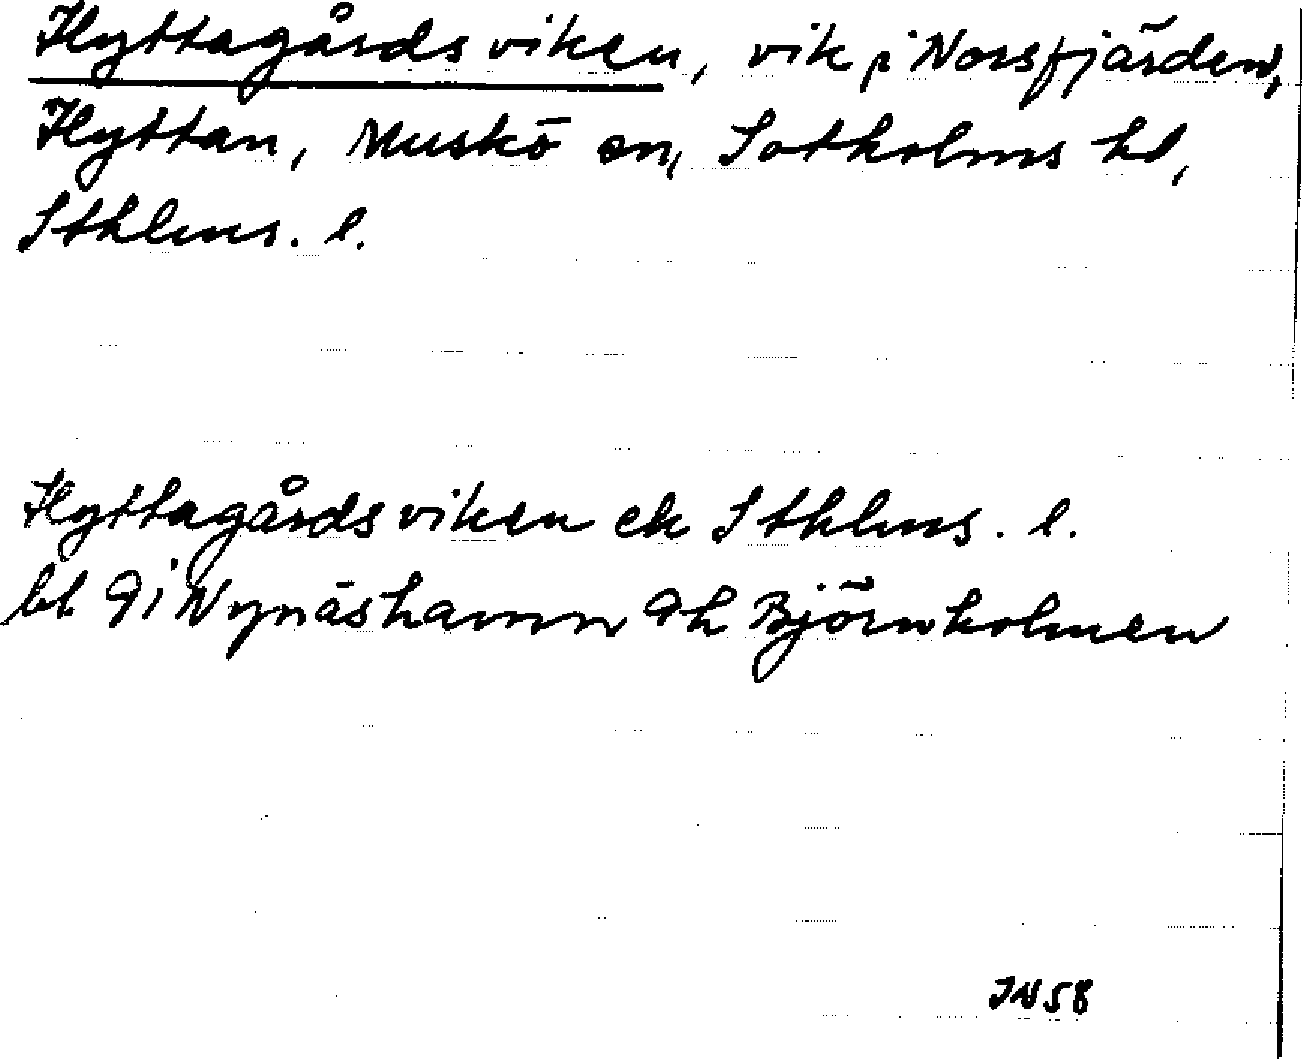 Hyttagårdsviken, vik i Norsfjärden,
Hyttan, Muskö sn, Sotholms hd,
Sthlms. l.
Hyttagårdsviken ek Sthlms. l.
bl 9i Nynäshamn 9h Björnholmen
JN58